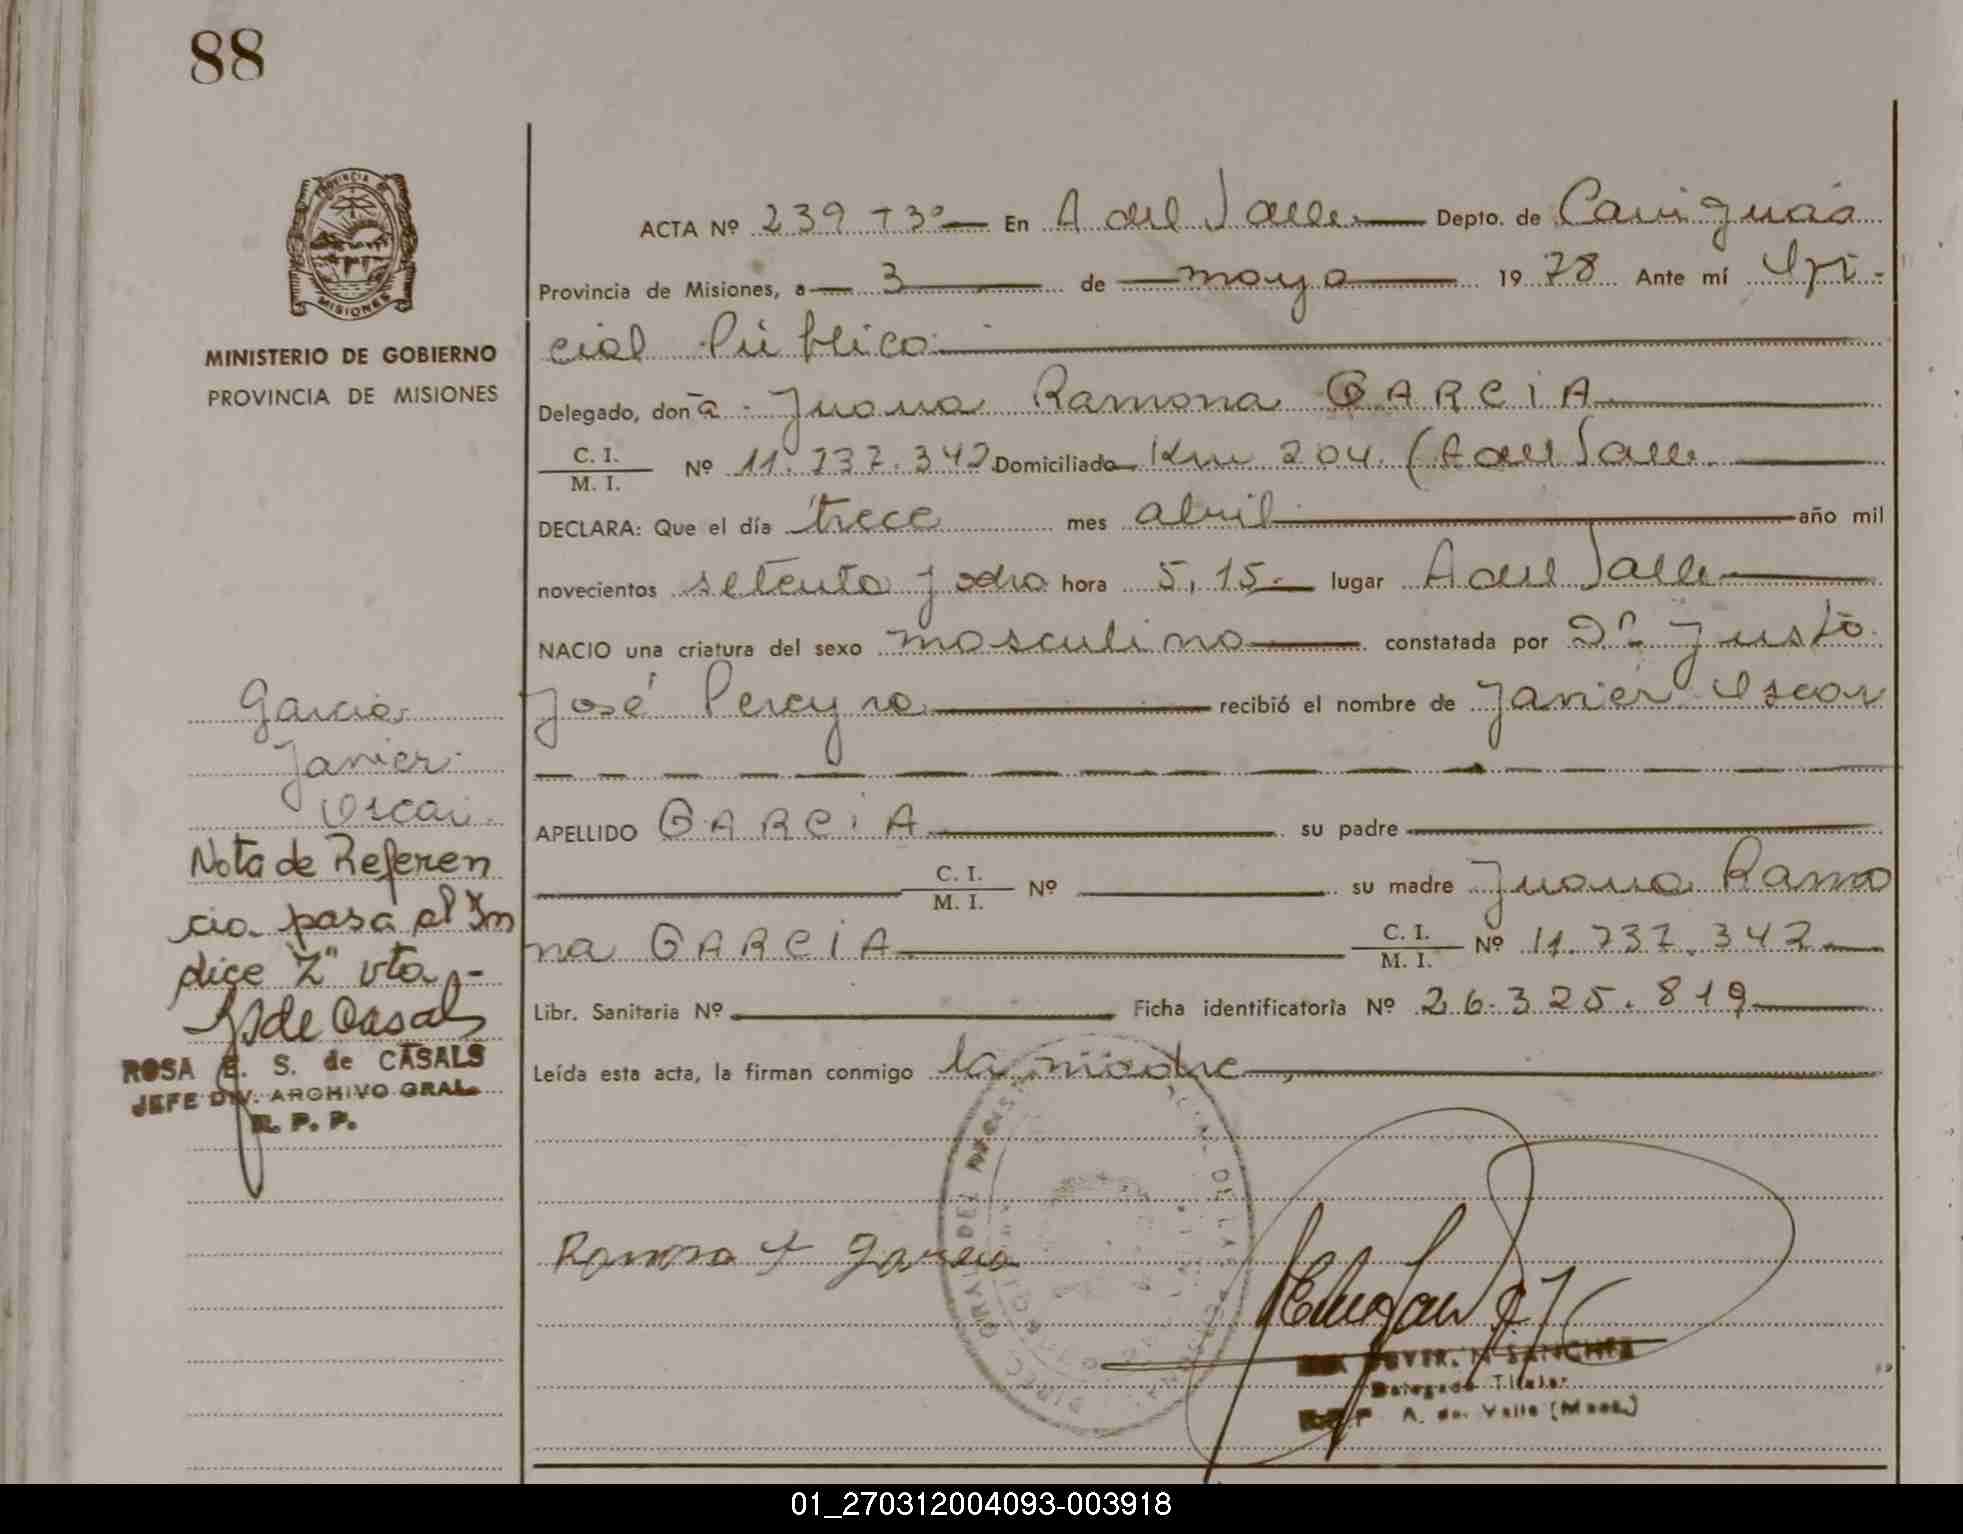 88
PROVINCIA DE
MISIONES
MINISTERIO DE GOBIERNO
PROVINCIA DE MISIONES
ACTA Nº 239 T3º En A del Valle Depto. de Cainguás
Provincia de Misiones, a 3 de mayo 1978 Ante mí Ofi-
cial Público
Delegado, don a Juana Ramona GARCIA
C. I. / M. I. Nº 11.737.342 Domiciliado Km 204 (A del Valle
DECLARA: Que el día trece mes abril año mil
novecientos setenta y ocho hora 5,15 lugar A del Valle
NACIO una criatura del sexo masculino constatada por Dr Justo
José Pereyra recibió el nombre de Javier Oscar
APELLIDO GARCIA su padre
C. I. / M. I. Nº su madre Juana Ramo
na GARCIA C. I. / M. I. Nº 11.737.342
Libr. Sanitaria Nº Ficha identificatoria Nº 26.325.819
Leída esta acta, la firman conmigo la madre
Ramona J Garcia
SANCHEZ
Delegado Titular
A. del Valle (Mnes.)
Garcia
Javier
Oscar
Nota de Referen
cia pasa al Ín
dice "Z" vta
S de Casals
ROSA E. S. de CASALS
JEFE DIV. ARCHIVO GRAL.
R. P. P.
01_270312004093-003918